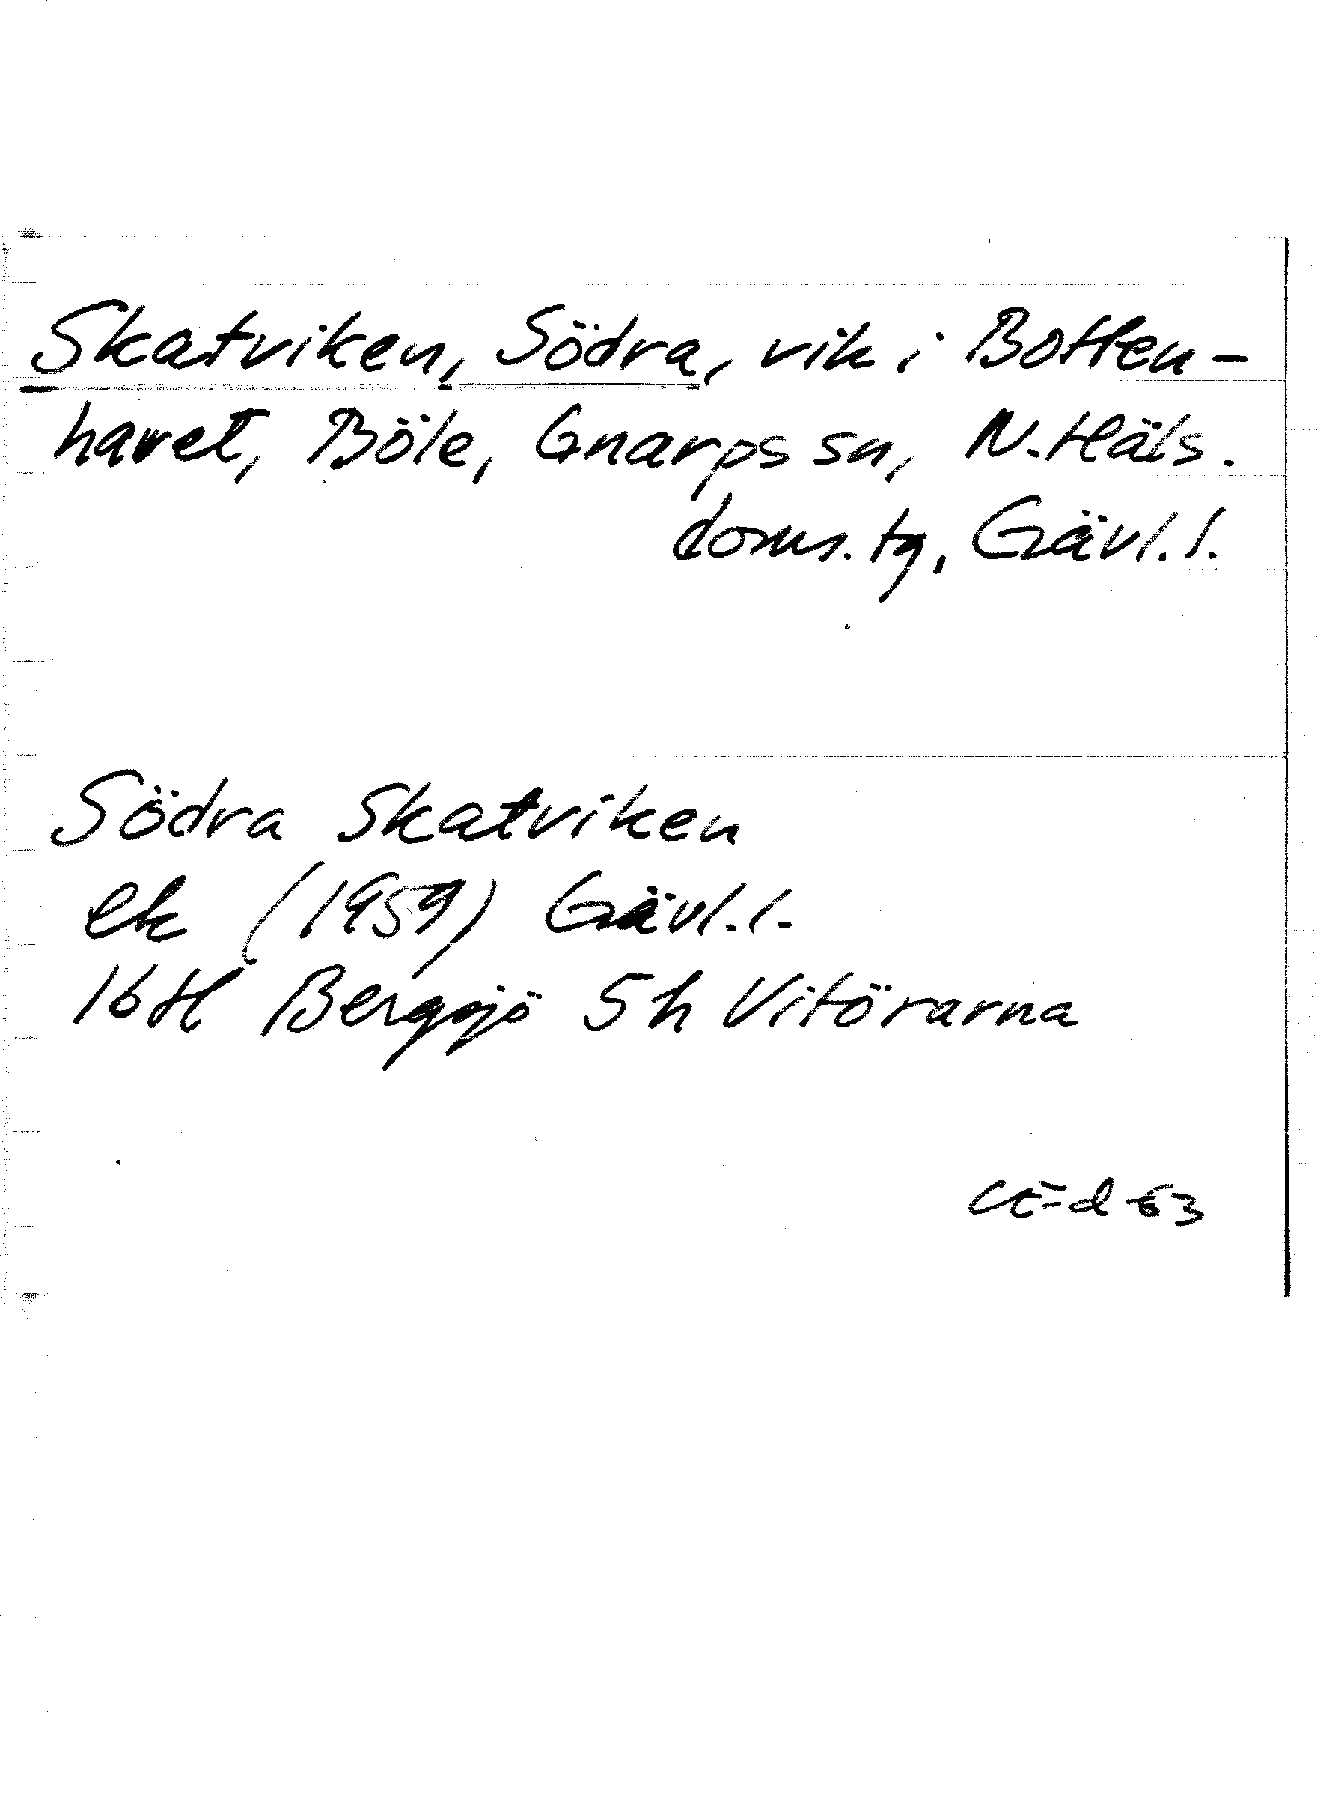 Skatviken, Södra, vik i Botten-
havet, Böle, Gnarps sn, N. Häls.
doms. tg, Gävl. l.
Södra Skatviken
ek (1959) Gävl. l.
16H Bergsjö 5h Vitörarna